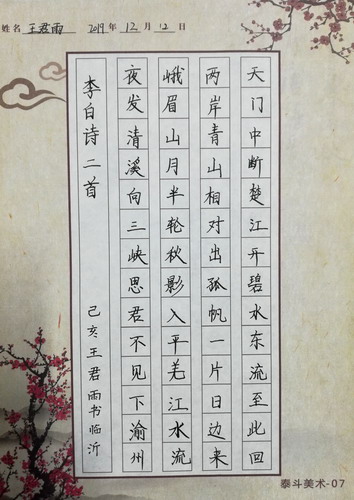 姓名 王君雨 2019年 12月 12日
天门中断楚江开碧水东流至此回
两岸青山相对出孤帆一片日边来
峨眉山月半轮秋影入平羌江水流
夜发清溪向三峡思君不见下渝州
李白诗二首
己亥王君雨书临沂
泰斗美术-07